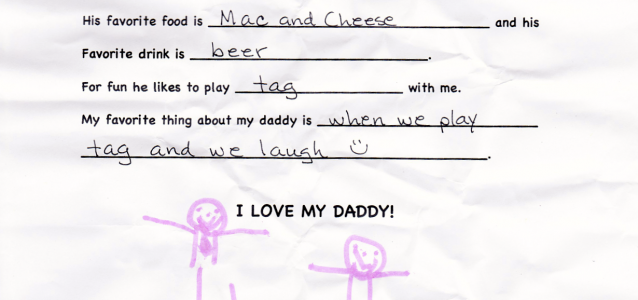 His favorite food is Mac and Cheese and his
Favorite drink is beer.
For fun he likes to play tag with me.
My favorite thing about my daddy is when we play
tag and we laugh ☺.
I LOVE MY DADDY!